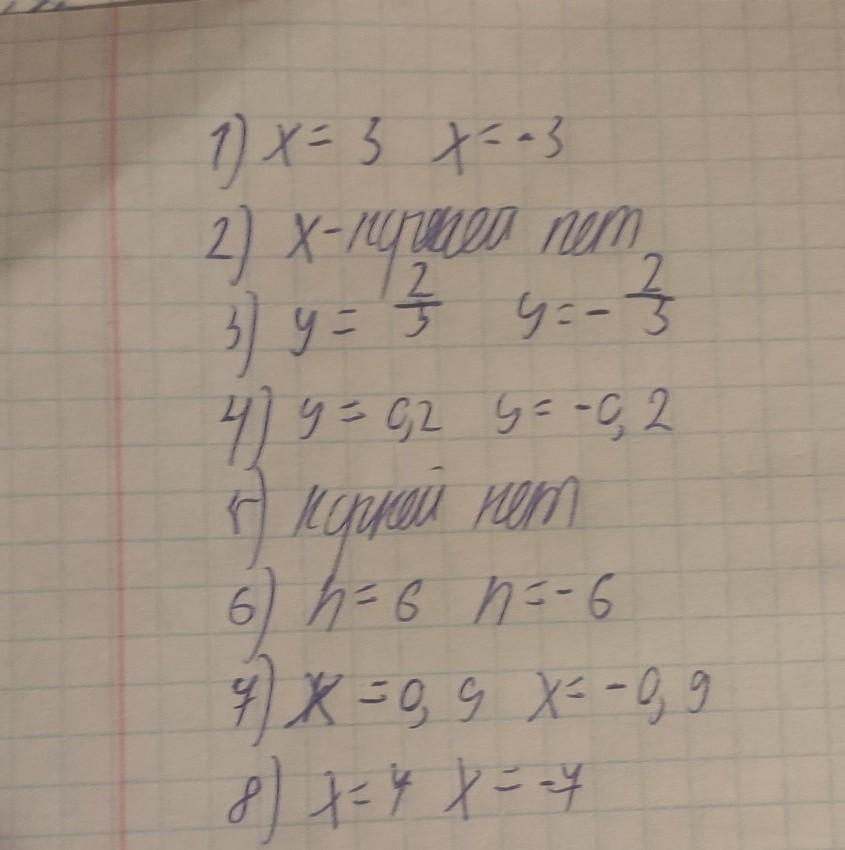 1) x = 3 x = -3
2) x - корней нет
3) y = 2/3 y = - 2/3
4) y = 0,2 y = -0,2
5) корней нет
6) n = 6 n = -6
7) x = 0,9 x = -0,9
8) x = 7 x = -7